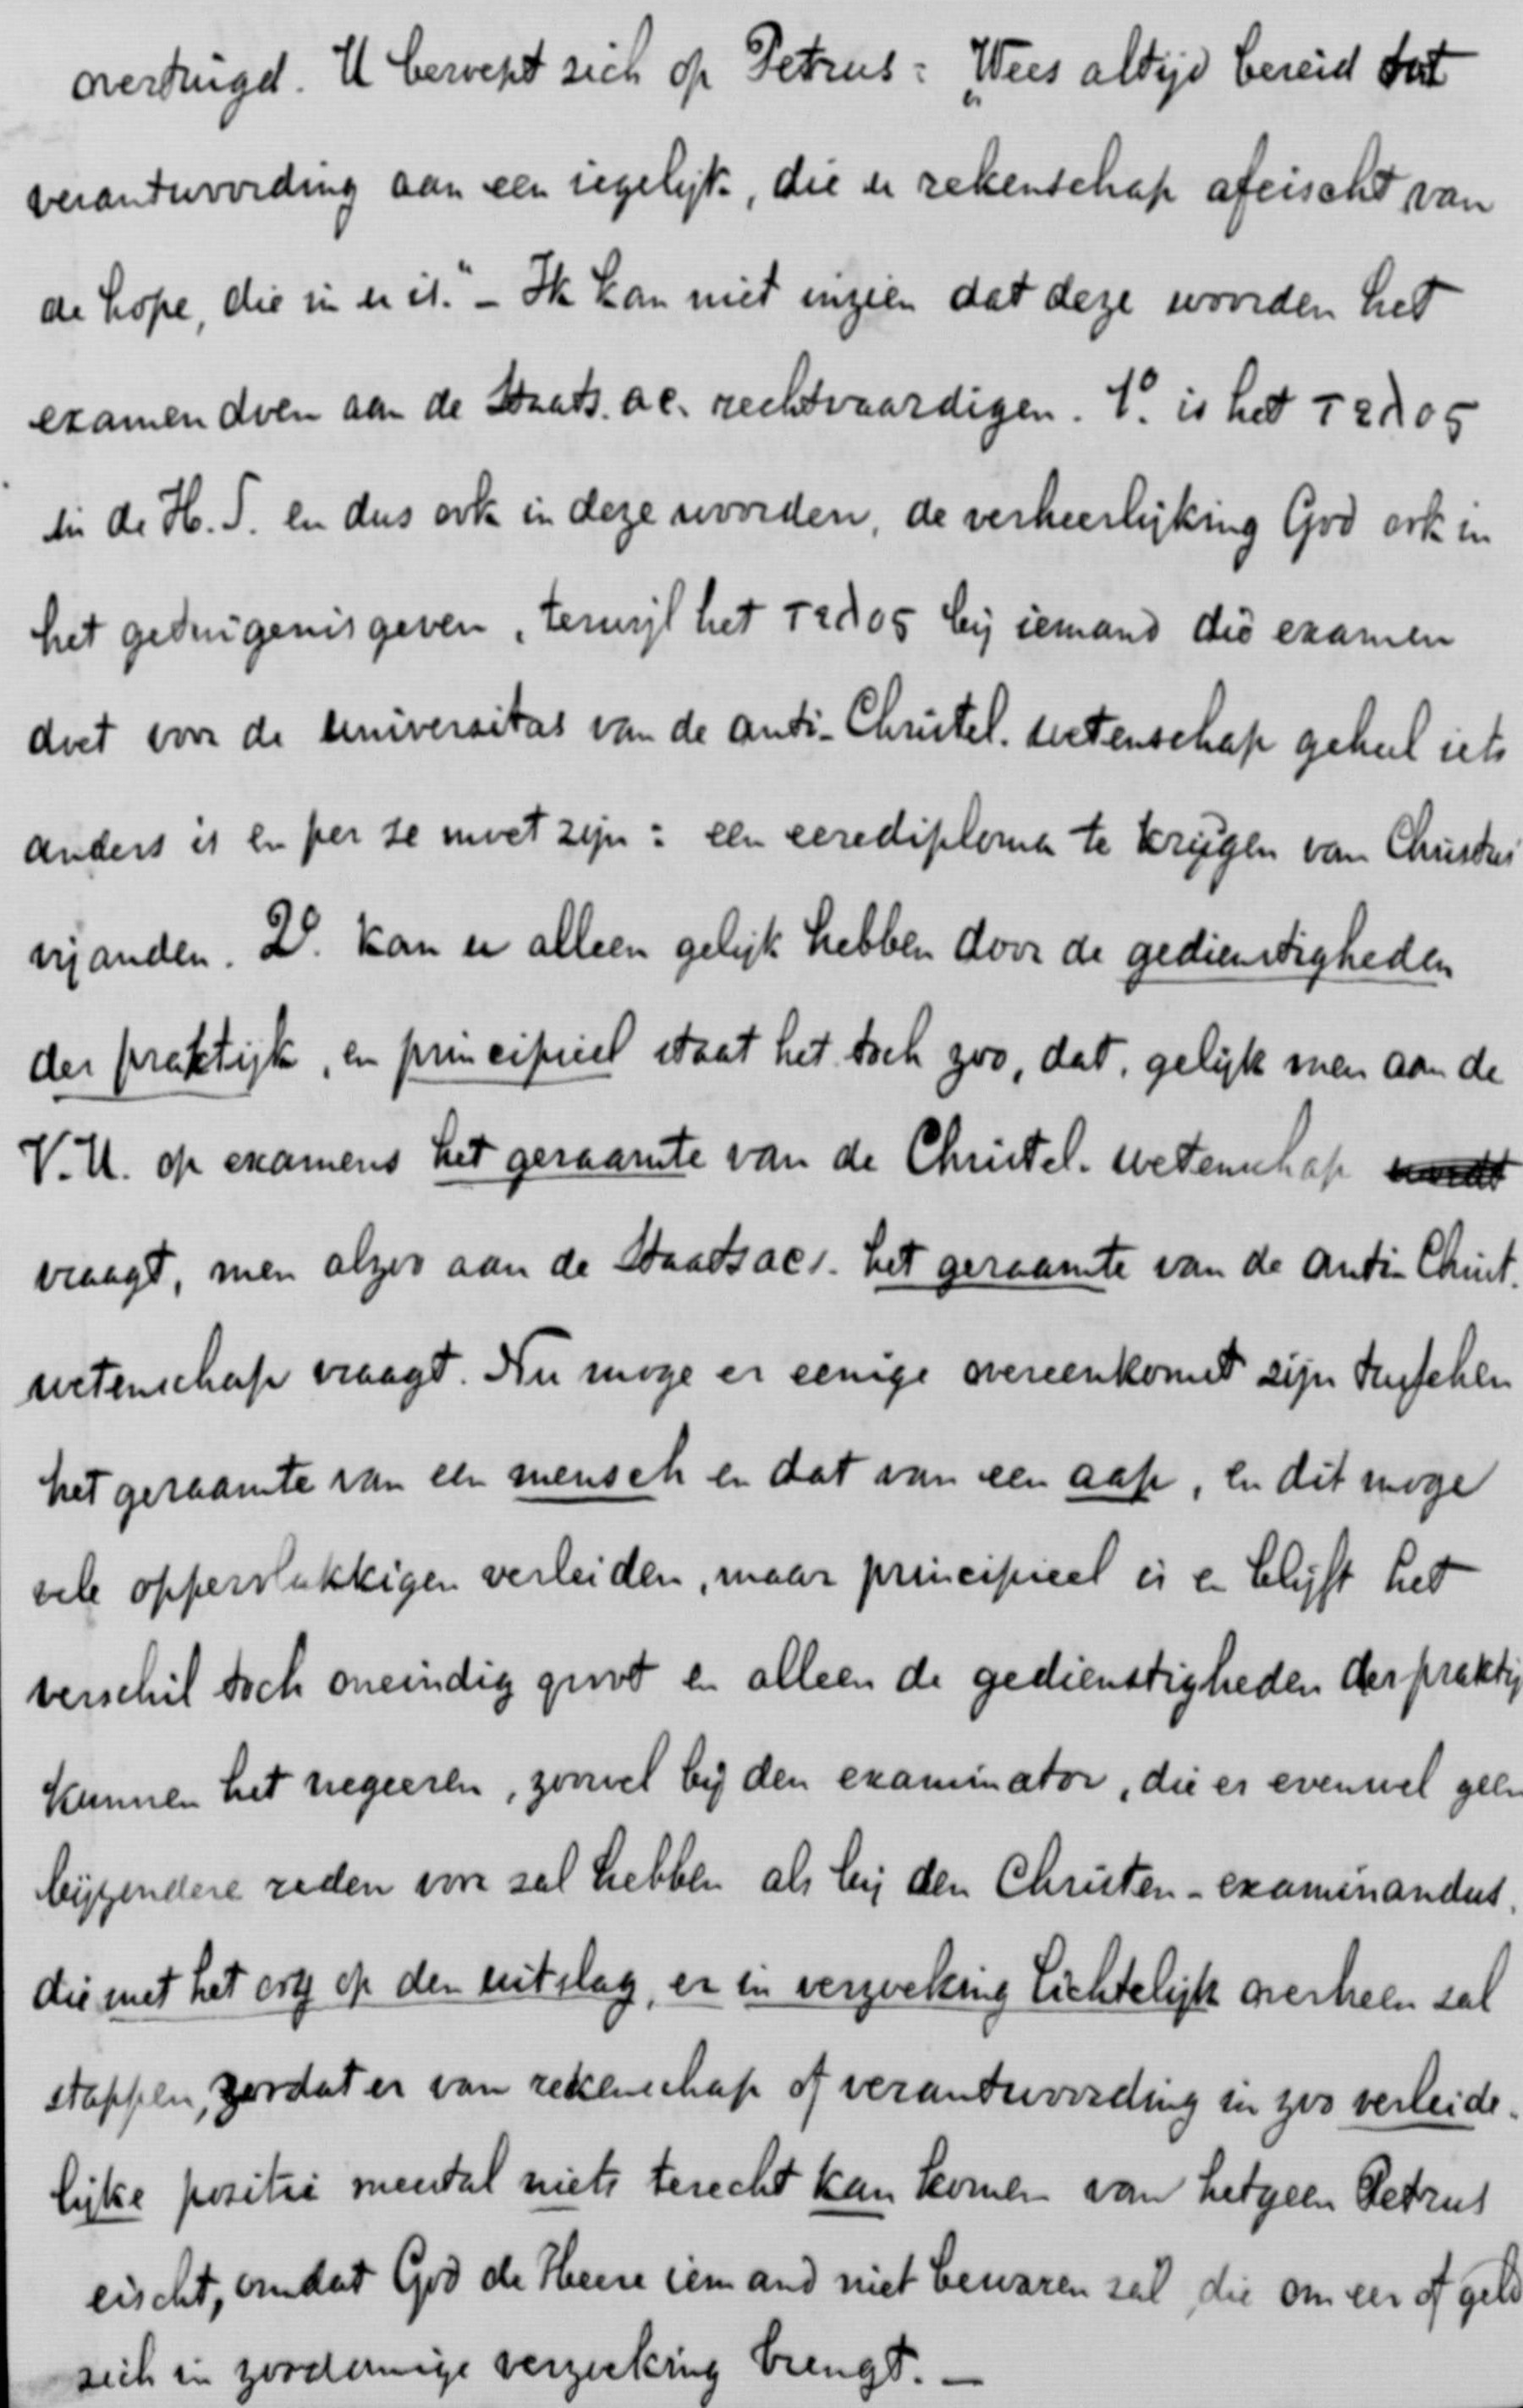 overtuigd. U beroept sich op Petrus: „Wees altijd bereid tot
verantwoording aan een iegelijk, die u rekenschap afeischt van
de hope, die in u is." – Ik kan niet inzien dat deze woorden het
examen doen aan de Staats. ac. rechtvaardigen. 1º. is het τελος
in de H.S. en dus ook in deze woorden, de verheerlijking God ook in
het getuigenis geven, terwijl het τελος bij iemand die examen
doet voor de universitas van de anti-Christel. wetenschap geheel iets
anders is en per se moet zijn: een eerediploma te krijgen van Christus
vijanden. 2º. kan u alleen gelijk hebben door de gedienstigheden
der praktijk, en principieel staat het toch zoo, dat, gelijk men aan de
V.U. op examens het geraamte van de Christel. wetenschap
vraagt, men alzoo aan de Staatsacs. het geraamte van de anti-Christ.
wetenschap vraagt. Nu moge er eenige overeenkomst zijn tusschen
het geraamte van een mensch en dat van een aap, en dit moge
vele oppervlakkigen verleiden, maar principieel is en blijft het
verschil toch oneindig groot en alleen de gedienstigheden der praktij
kunnen het negeeren, zoowel bij den examinator, die er evenwel geen
bijzondere reden voor sal hebben als bij den Christen-examinandus,
die met het oog op den uitslag, er in verzoeking lichtelijk overheen sal
stappen, zoodat er van rekenschap of verantwoording in zoo verleide-
lijke positie meestal niets terecht kan komen van hetgeen Petrus
eischt, omdat God de Heere iemand niet bewaren sal, die om eer of geld
sich in zoodanige verzoeking brengt. –